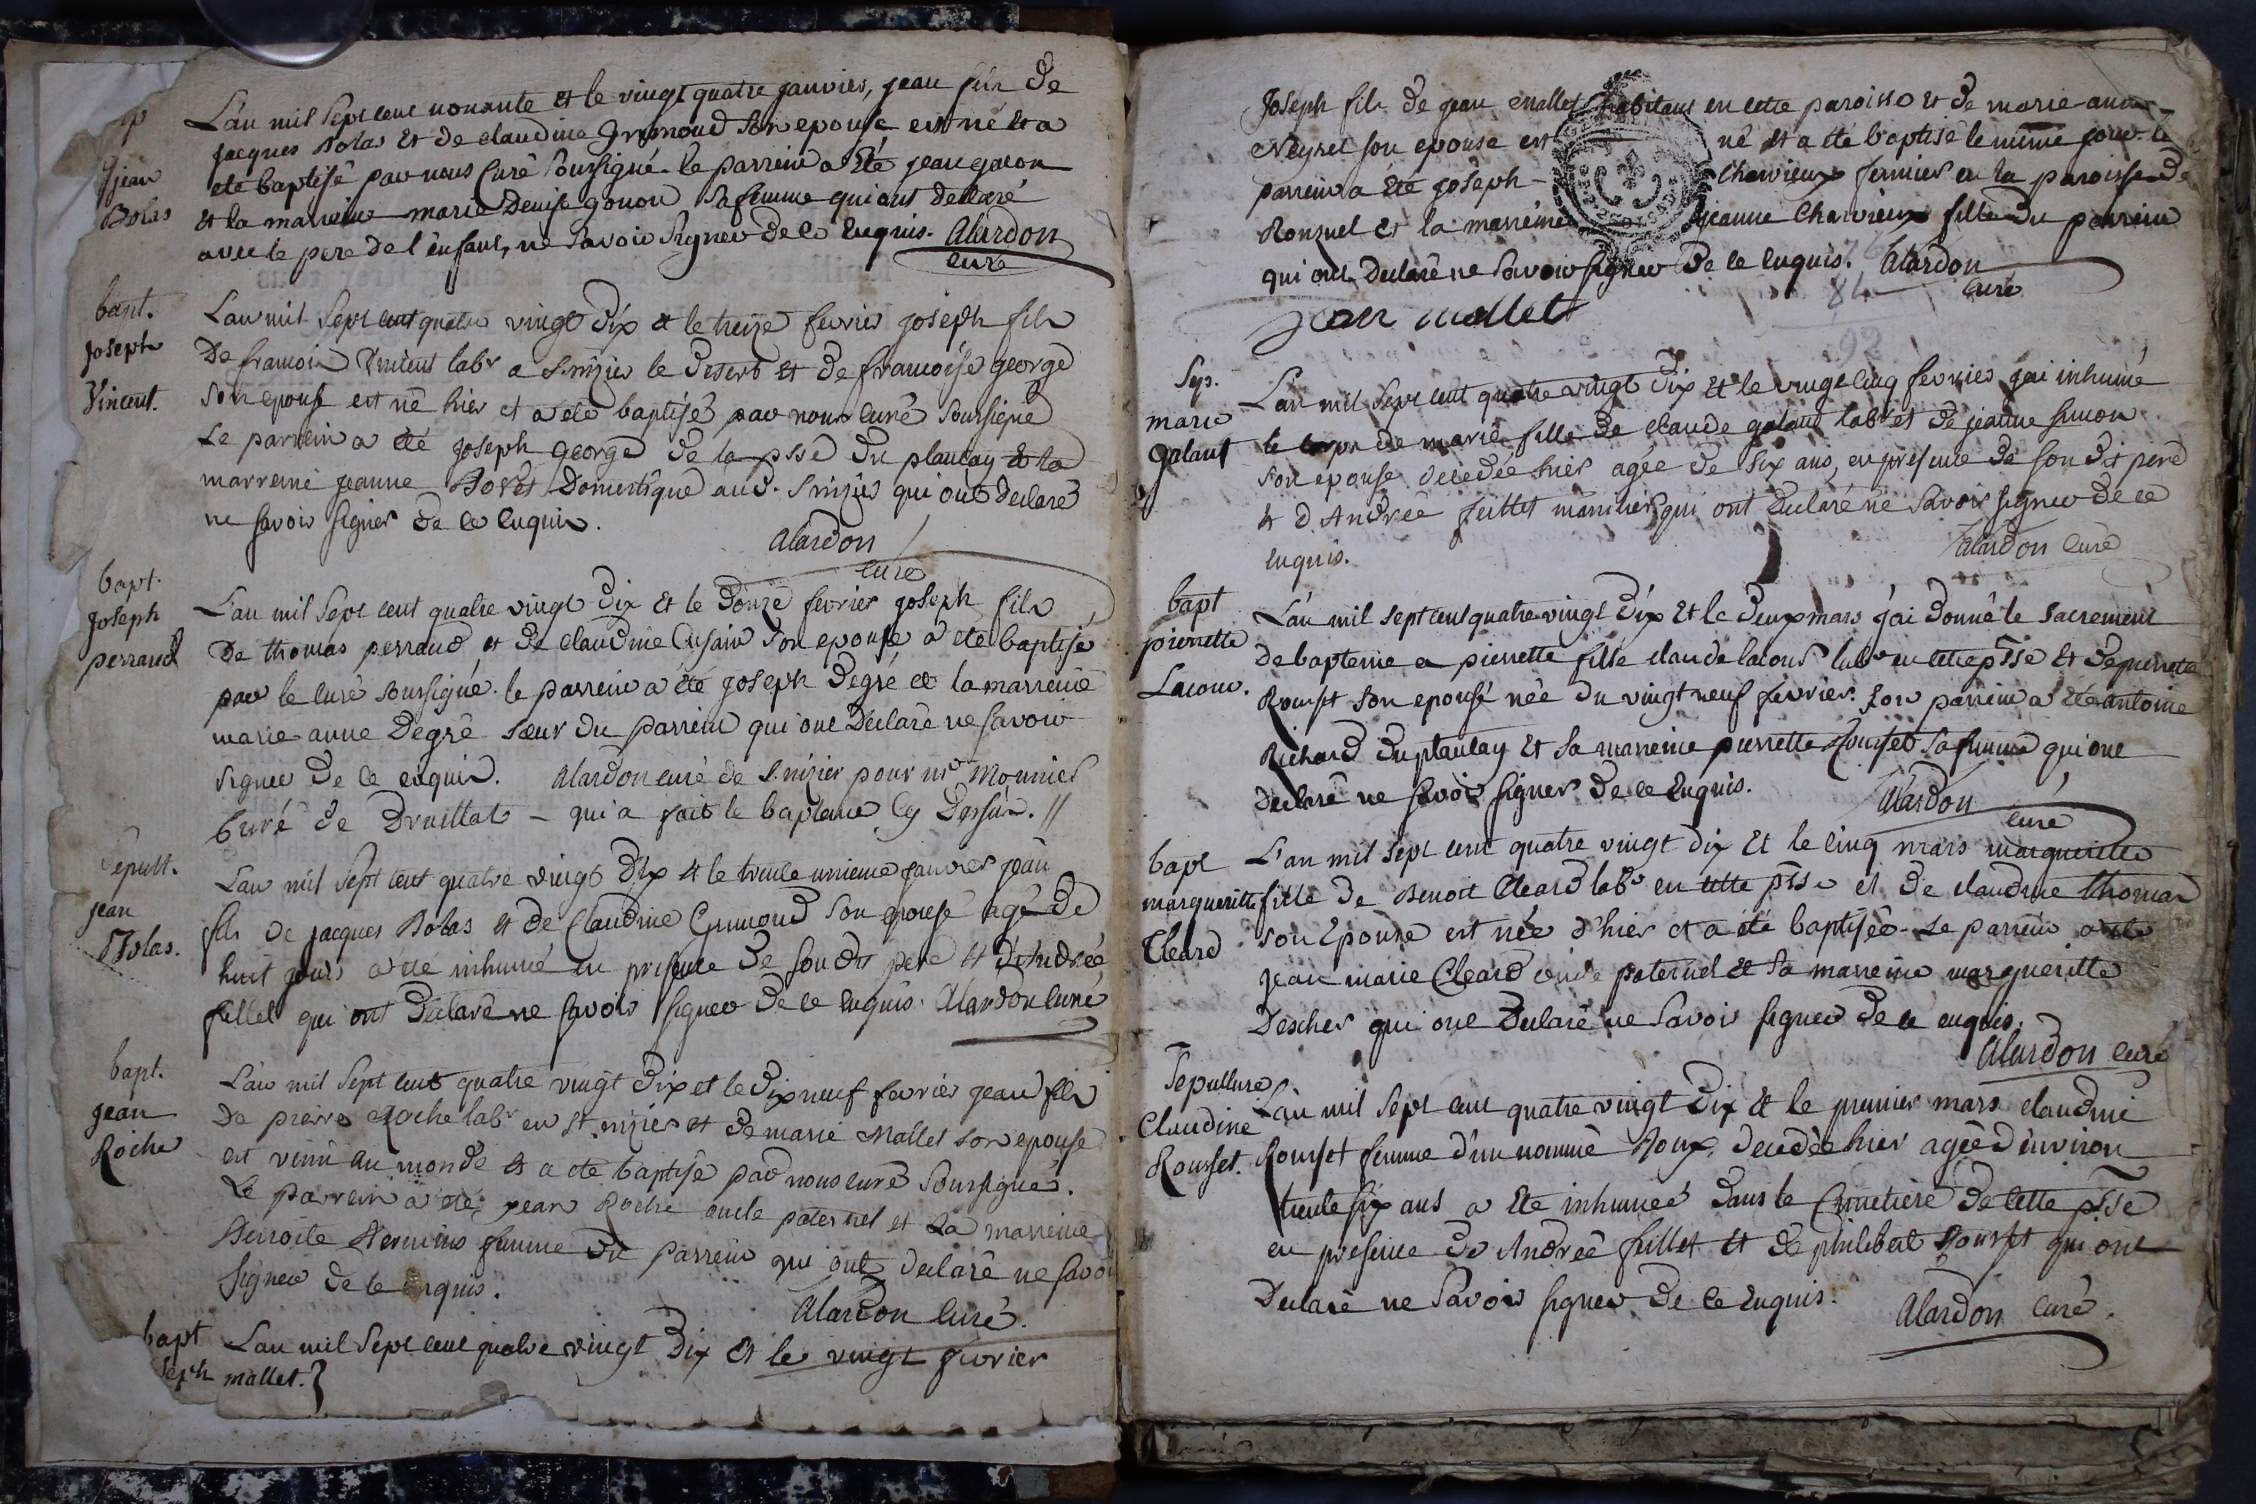 bap
jean
Bolas
L'an mil sept cent nonante et le vingt quatre janvier, jean fils de
jacques Bolas et de claudine Grumoud son epouse est né et a
eté baptisé par nous Curé Soussigné. le parrein a été jean gacon
et la marreine marie Denise gonon sa femme qui ont declaré
avec le pere de l'enfant, ne Savoir Signer de ce Enquis. Alardon
curé
bapt.
joseph
Vincent.
L'an mil sept cent quatre vingt dix et le treize fevrier joseph fils
De francois Vincent labr a S. nizier le desert et de francoise george
son epouse est né hier et a eté baptisé par nous curé soussigné
Le parrein a été joseph george de la psse du plantay et la
marreine jeanne Borés Domestique aud. S nizier qui ont declaré
ne savoir signer de ce Enquis.
Alardon
curé
bapt.
joseph
perraud
L'an mil sept cent quatre vingt dix et le Douze fevrier joseph fils
De thomas perraud et de claudine Cusain son epouse a eté baptisé
par le curé soussigné. le parrein a été joseph Degré et la marreine
marie anne Degré sœur du parrein qui ont Déclaré ne savoir
signer de ce enquis. Alardon curé de S. nizier pour mr Mounier
Curé de Druillat - qui a fait le baptême Cy Dessus. //
Sepult.
jean
Bolas.
L'an mil sept cent quatre vingt Dix et le trente unieme janvier jean
fils de jacques Bolas et de Claudine Grumoud son epouse agé de
huit jours a été inhumé en presence de son dit pere et d'Andrée
fillet qui ont déclaré ne savoir signer de ce enquis. Alardon curé
bapt.
jean
Roche
L'an mil sept cent quatre vingt dix et le dix neuf fevrier jean fils
De pierre Roche labr en St. nizier et de marie Mallet son epouse
est venu au monde et a eté baptisé par nous curé Soussigné.
Le parrein a été jean Roche oncle paternel et La marreine
Benoite femme du parrein qui ont declaré ne savoir
signer de ce enquis.
Alardon Curé.
bapt
seph mallet. }
L'an mil sept cent quatre vingt Dix et le vingt fevrier
Joseph fils de jean mallet habitant en cette paroisse et de marie anne
Neyret son epouse est né et a été baptisé le même jour. le
parrein a été joseph Chervieux fermier en la paroisse de
Ronzuel et la marreine jeanne Chervieux fille du parrein
qui ont Declaré ne Savoir signer De ce enquis. Alardon
curé
84
jean mallet
92
Sep.
marie
galant
L'an mil sept cent quatre vingt Dix et le vingt cinq fevrier j'ai inhumé
le corps de marie fille de claude galant labr et de jeanne simon
son epouse decedée hier agée de six ans, en presence de son dit pere
et d'Andrée feillet manilier, qui ont declaré ne savoir signer de ce
enquis.
Alardon Curé
bapt
pierrette
Lacour.
L'an mil sept cent quatre vingt Dix et le Deux mars j'ai donné le sacrement
de bapteme a pierrette fille claude lacour labr en cette psse et de pierrette
Rousset son epouse née du vingt neuf fevrier. son parrein a été antoine
Richard du plantay et sa marreine pierrette Rousset sa femme qui ont
declaré ne savoir signer de ce enquis.
Alardon
curé
bapt
margueritte
Cleard
L'an mil sept cent quatre vingt dix et le cinq mars margueritte
fille de Benoit Cleard labr en cette psse et de claudine thomas
son Epouse est née d'hier et a été baptisée. Le parrein a été
jean marie Cleard oncle paternel et sa marreine margueritte
Descher qui ont declaré ne savoir signer de ce enquis.
Alardon curé
Sepulture
Claudine
Rousset.
L'an mil sept cent quatre vingt Dix et le premier mars claudine
Rousset femme d'un nommé Roux, decedée hier agée d'environ
trente six ans a été inhumée dans le Cimetiere de cette psse
en presence de Andrée feillet et de philibert Rousset qui ont
Declaré ne savoir signer de ce enquis.
Alardon curé.